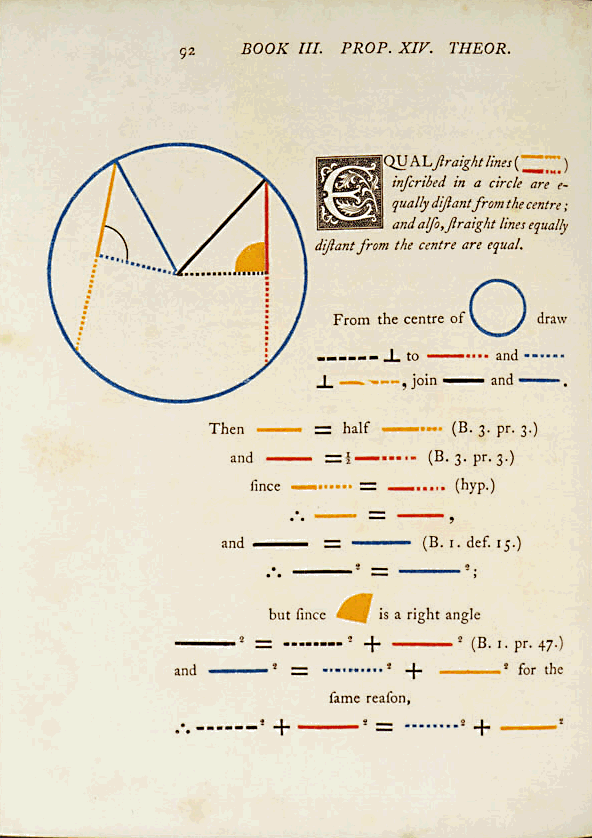 92 BOOK III. PROP. XIV. THEOR.
EQUAL ſtraight lines ( )
inſcribed in a circle are e-
qually diſtant from the centre;
and alſo, ſtraight lines equally
diſtant from the centre are equal.
From the centre of draw
⊥ to and
⊥ , join and .
Then = half (B. 3. pr. 3.)
and = ½ (B. 3. pr. 3.)
ſince = (hyp.)
∴ = ,
and = (B. 1. def. 15.)
∴ ² = ²;
but ſince is a right angle
² = ² + ² (B. 1. pr. 47.)
and ² = ² + ² for the
ſame reaſon,
∴ ² + ² = ² + ²